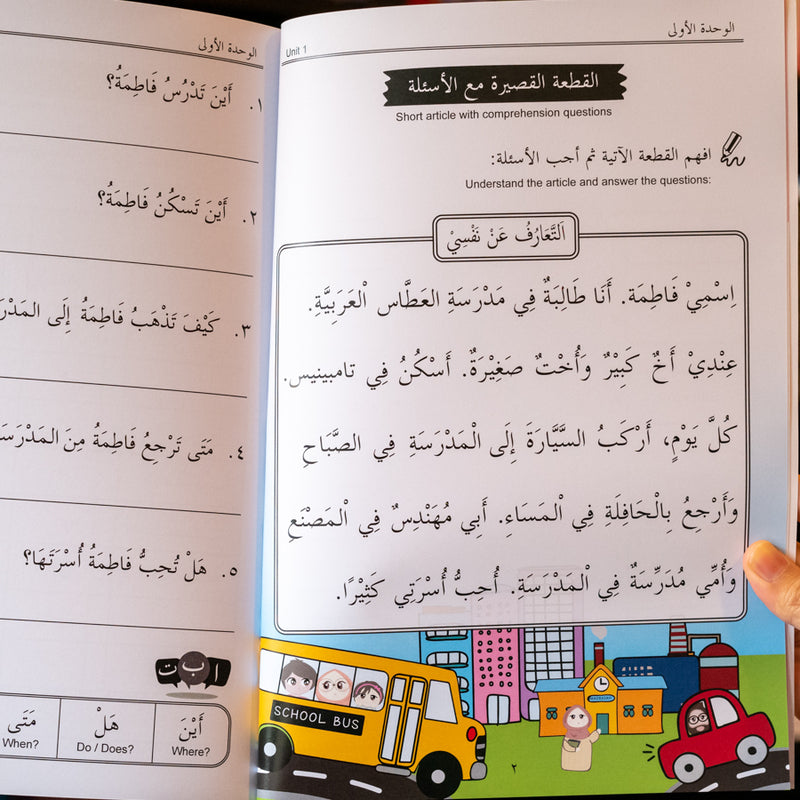 الوحدة الأولى
Unit 1
القطعة القصيرة مع الأسئلة
Short article with comprehension questions
افهم القطعة الآتية ثم أجب الأسئلة:
Understand the article and answer the questions:
اَلتَّعَارُفُ عَنْ نَفْسِيْ
اِسْمِيْ فَاطِمَة. أَنَا طَالِبَةٌ فِي مَدْرَسَةِ العَطَّاس الْعَرَبِيَّةِ.
عِنْدِيْ أَخٌ كَبِيْرٌ وَأُخْتٌ صَغِيْرَةٌ. أَسْكُنُ فِي تامبينيس.
كُلَّ يَوْمٍ، أَرْكَبُ السَّيَّارَةَ إِلَى الْمَدْرَسَةِ فِي الصَّبَاحِ
وَأَرْجِعُ بِالْحَافِلَةِ فِي الْمَسَاءِ. أَبِي مُهَنْدِسٌ فِي الْمَصْنَعِ
وَأُمِّي مُدَرِّسَةٌ فِي الْمَدْرَسَةِ. أُحِبُّ أُسْرَتِي كَثِيْرًا.
SCHOOL BUS
٢
الوحدة الأولى
١. أَيْنَ تَدْرُسُ فَاطِمَةُ؟
٢. أَيْنَ تَسْكُنُ فَاطِمَةُ؟
٣. كَيْفَ تَذْهَبُ فَاطِمَةُ إِلَى
٤. مَتَى تَرْجِعُ فَاطِمَةُ مِنَ
٥. هَلْ تُحِبُّ فَاطِمَةُ أُسْرَتَهَا؟
ا ب ت
أَيْنَ هَلْ مَتَى
Where? Do / Does? When?